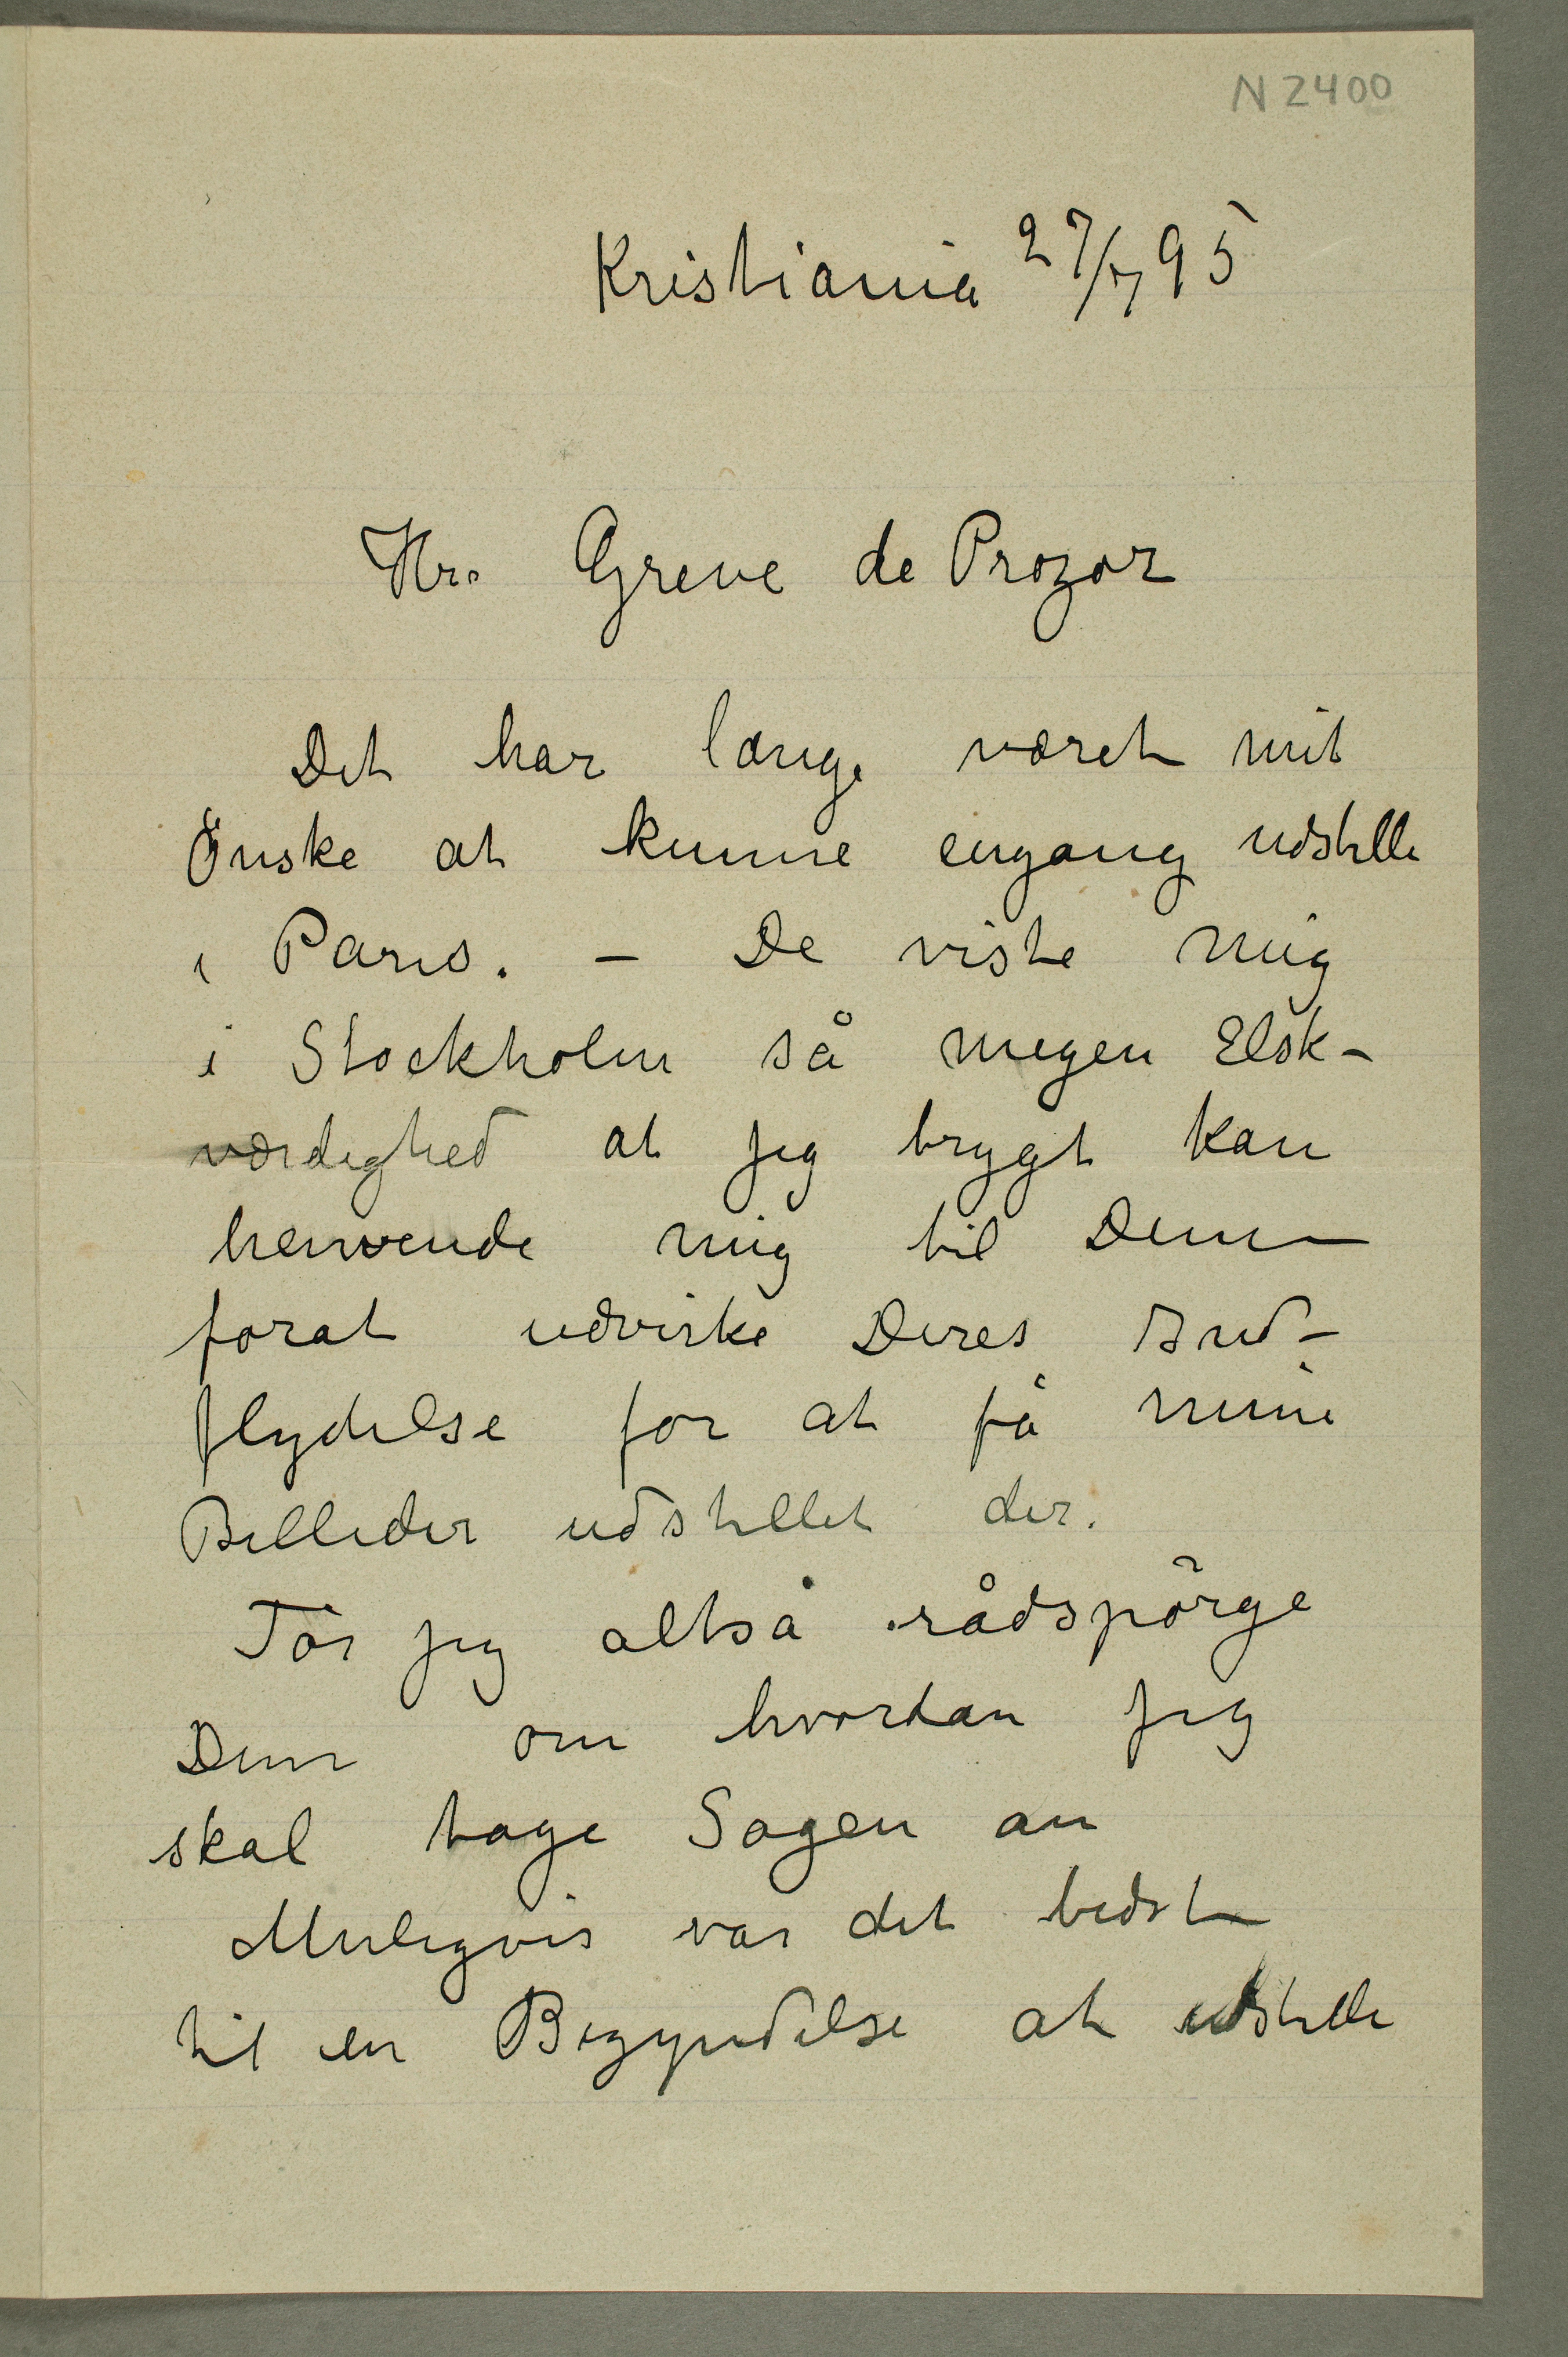 N 2400
Kristiania 27/7 95
Hr. Greve de Prozor
Det har længe været mit
Önske at kunne engang udstille
i Paris. – De viste mig
i Stockholm så megen Elsk-
værdighed at jeg trygt kan
henvende mig til Dem
forat udvirke Deres Ind-
flydelse for at få mine
Billeder udstillet der.
Tör jeg altså rådspörge
Dem om hvordan jeg
skal tage Sagen an
Muligvis var det bedst
til en Begyndelse at udstille